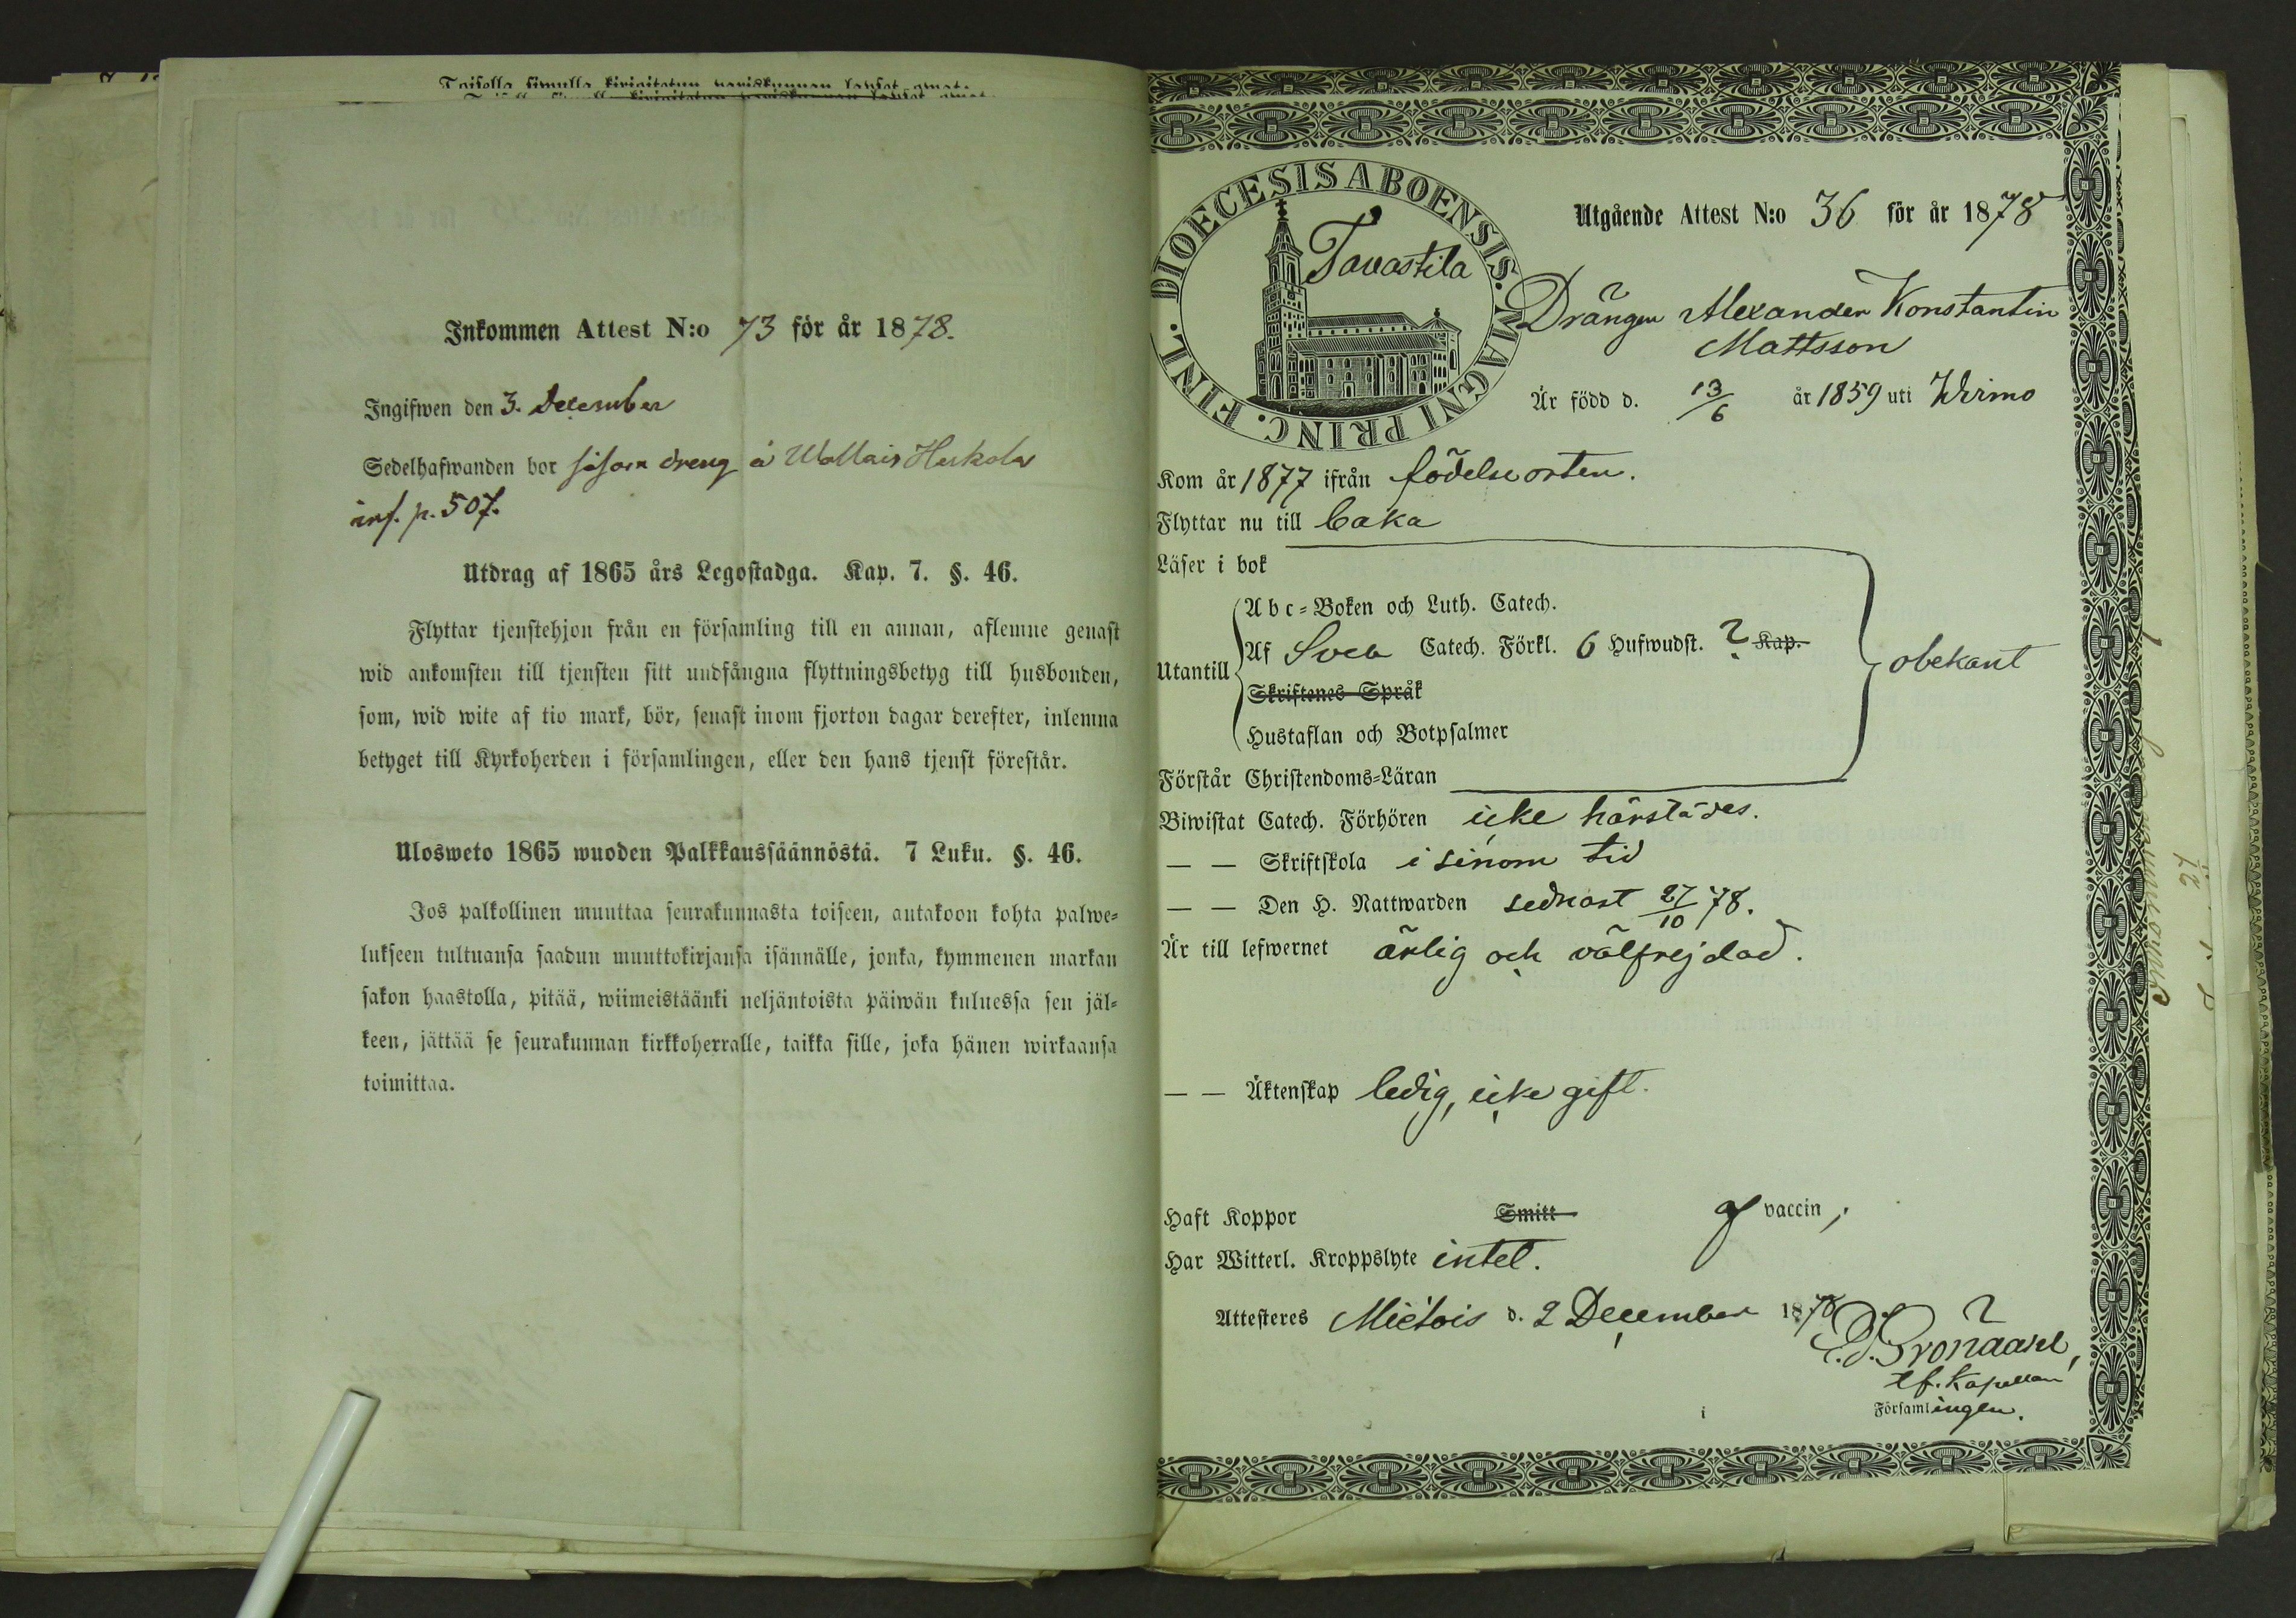 Toisella simulla kirjoitetun pariskunnan lapset owat.
Inkommen Attest N:o 73 för år 1878.
Ingifwen den 3. December
Sedelhafwanden bor såsom dreng å Wallais Huskola
inf. p. 507.
Utdrag af 1865 års Legostadga. Kap. 7. §. 46.
Flyttar tjenstehjon från en församling till en annan, aflemne genast
wid ankomsten till tjensten sitt undfångna flyttningsbetyg till husbonden,
som, wid wite af tio mark, bör, senast inom fjorton dagar derefter, inlemna
betyget till Kyrkoherden i församlingen, eller den hans tjenst förestår.
Ulosweto 1865 wuoden Palkkaussäännöstä. 7 Luku. §. 46.
Jos palkollinen muuttaa seurakunnasta toiseen, antakoon kohta palwe=
lukseen tultuansa saadun muuttokirjansa isännälle, jonka, kymmenen markan
sakon haastolla, pitää, wiimeistäänki neljäntoista päiwän kuluessa sen jäl=
keen, jättää se seurakunnan kirkkoherralle, taikka sille, joka hänen wirkaansa
toimittaa.
DIOECESIS ABOENSIS. MAGNI PRINC. FINL.
Tavastila
Utgående Attest N:o 36 för år 1878
Drängen Alexander Konstantin
Mattsson
Är född d. 13/6 år 1859 uti Wirmo
Kom år 1877 ifrån födelseorten.
Flyttar nu till Caka
Läser i bok
Utantill
Abc=Boken och Luth. Catech.
Af Sveb Catech. Förkl. 6 Hufwudst. ? Kap.
Skriftenes Språk
Hustaflan och Botpsalmer
obekant
Förstår Christendoms=Läran
Biwistat Catech. Förhören icke härstädes.
— — Skriftskola i sinom tid
— — Den H. Nattwarden sednast 27/10 78.
Är till lefwernet ärlig och välfrejdad.
— — Äktenskap ledig, icke gift.
Haft Koppor Smitt af vaccin,
Har Witterl. Kroppslyte intet.
Attesteres Mietois d. 2 December 1878
E. J. Gröndahl,
tf. Kapellan
i Församlingen.